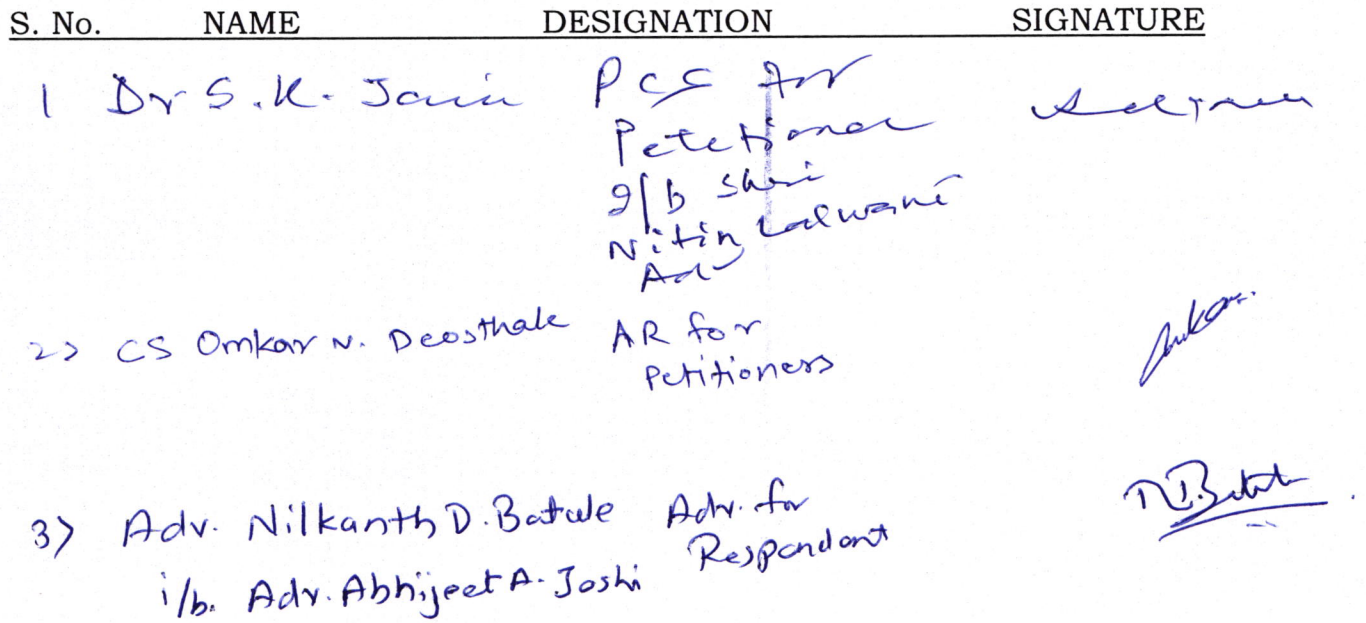 S. No. NAME DESIGNATION SIGNATURE
1 Dr S.K. Jain PCS for
Petetioner
I/b Shri
Nitin Lalwani
Adv
2) CS Omkar N. Deosthale AR for
Petitioners
3) Adv. Nilkanth D. Batule Adv. for
Respondant
i/b. Adv. Abhijeet A. Joshi